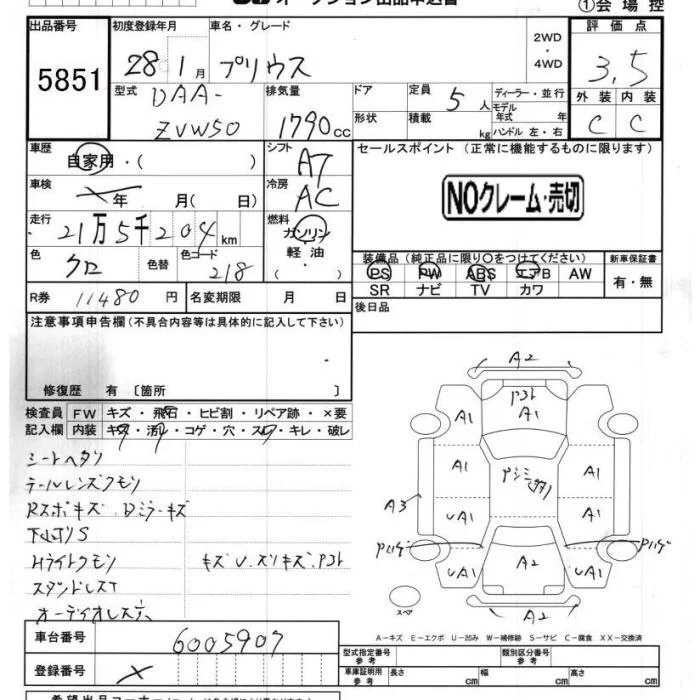 ①会場控
出品番号
5851
初度登録年月
28 1月
車名・グレード
プリウス
2WD
・
4WD
評価点
3,5
型式
DAA-
ZVW50
排気量
1790cc
ドア
形状
定員
5人
積載
kg
ディーラー・並行
モデル
年式 年
ハンドル 左・右
外装 内装
C C
車歴
自家用・( )
シフト
AT
セールスポイント (正常に機能するものに限ります)
NOクレーム・売切
車検
年 月( 日)
冷房
AC
走行
21万5千204km
燃料
ガソリン
軽油・
( )
色
クロ
色替
色コード
218
装備品 (純正品に限り○をつけてください)
PS PW ABS エアB AW
SR ナビ TV カワ
新車保証書
有・無
R券 11480円
名変期限 月 日
後日品
注意事項申告欄(不具合内容等は具体的に記入して下さい)
修復歴 有〔箇所 〕
検査員 FW キズ・飛石・ヒビ割・リペア跡・×要
記入欄 内装 キズ・汚レ・コゲ・穴・スレ・キレ・破レ
シートヘタリ
テールレンズクモリ
Rスポキズ、Dミラーキズ
下廻りS
Hライトクモリ キズU、スリキズ、Pコト
スタッドレスT
A2
Pコト
A1
A1 A1
A1 A1
A3
UA1 A1
Pハゲ Pハゲ
A2
UA1 UA1
A2
スペア
A-キズ E-エクボ U-凹み W-補修跡 S-サビ C-腐食 XX-交換済
車台番号
6005907
登録番号
型式指定番号
参考
類別区分番号
参考
車庫証明用
参考
長さ cm 幅 cm 高さ cm